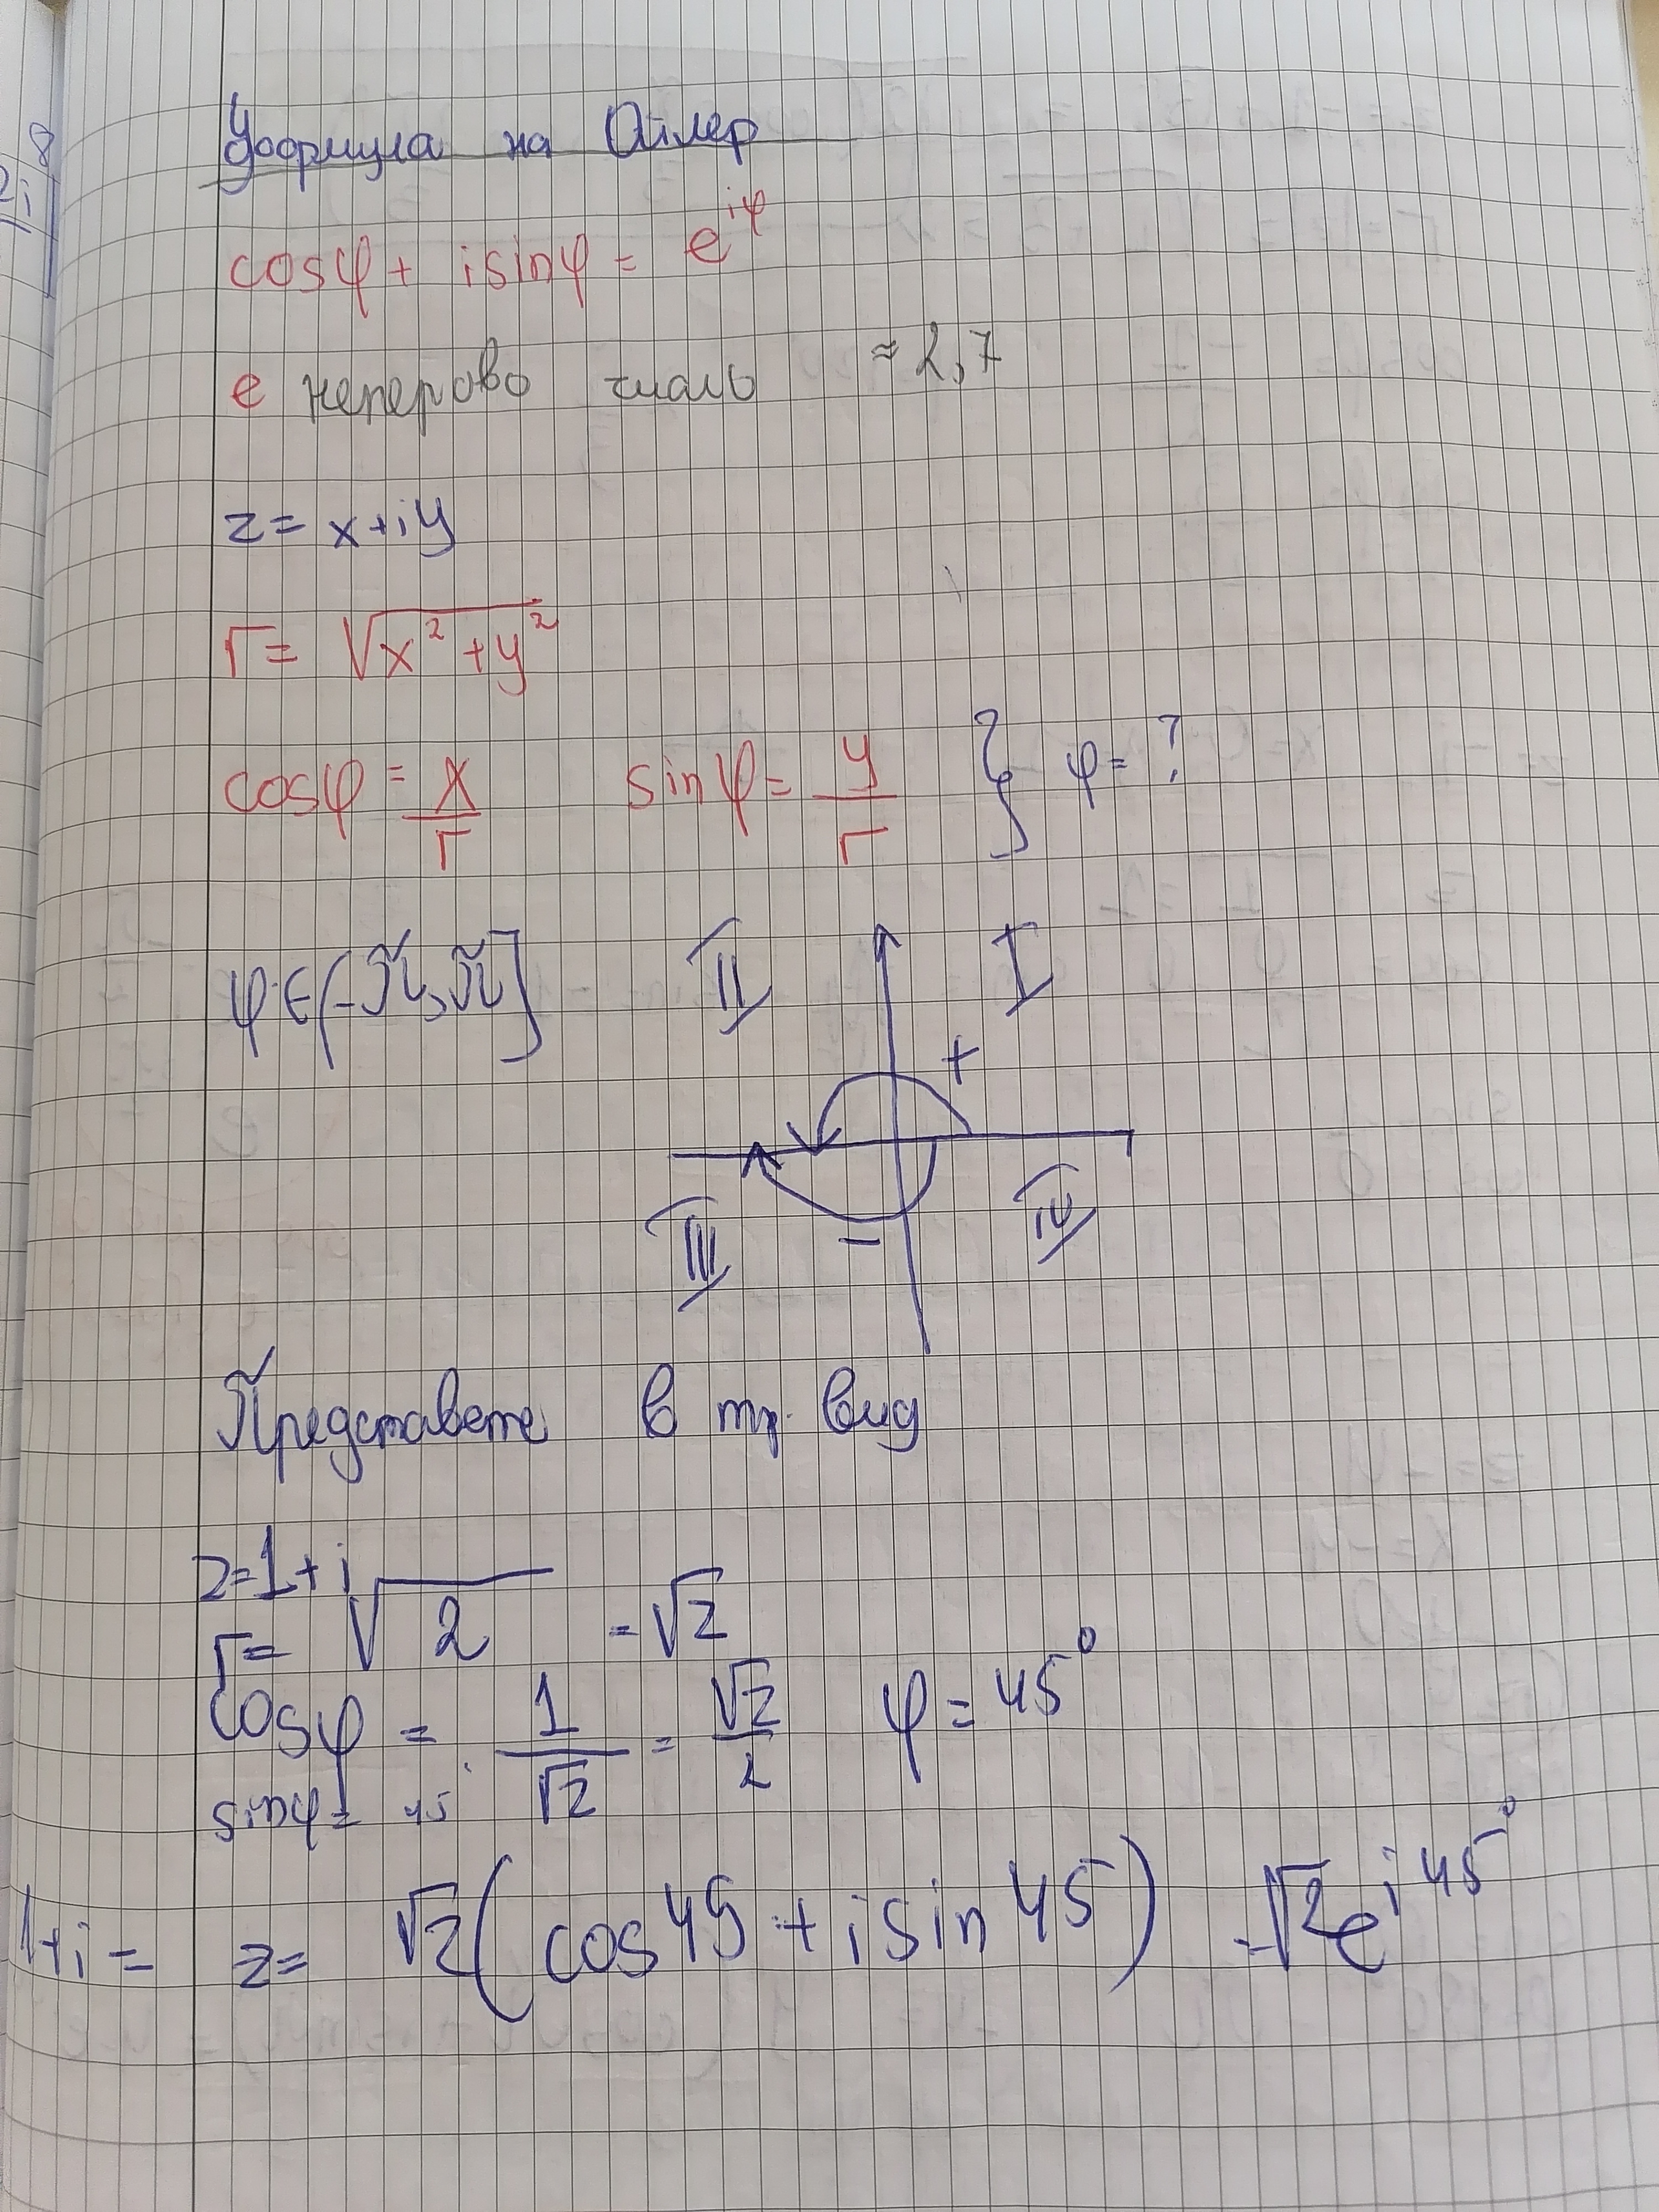 Формула на Ойлер
cosφ + isinφ = e^iφ
e неперово число ≈ 2,7
z = x+iy
r = √x² + y²
cosφ = x/r sinφ = y/r } φ = ?
φ ∈ (-π, π]
II I
+
III - IV
Представете в тр. вид
z=1+i
r= √2 = √2
cosφ = 1/√2 = √2/2 φ = 45°
sinφ = 45
1+i = z = √2 ( cos 45 + i sin 45 ) = √2 e^i 45°